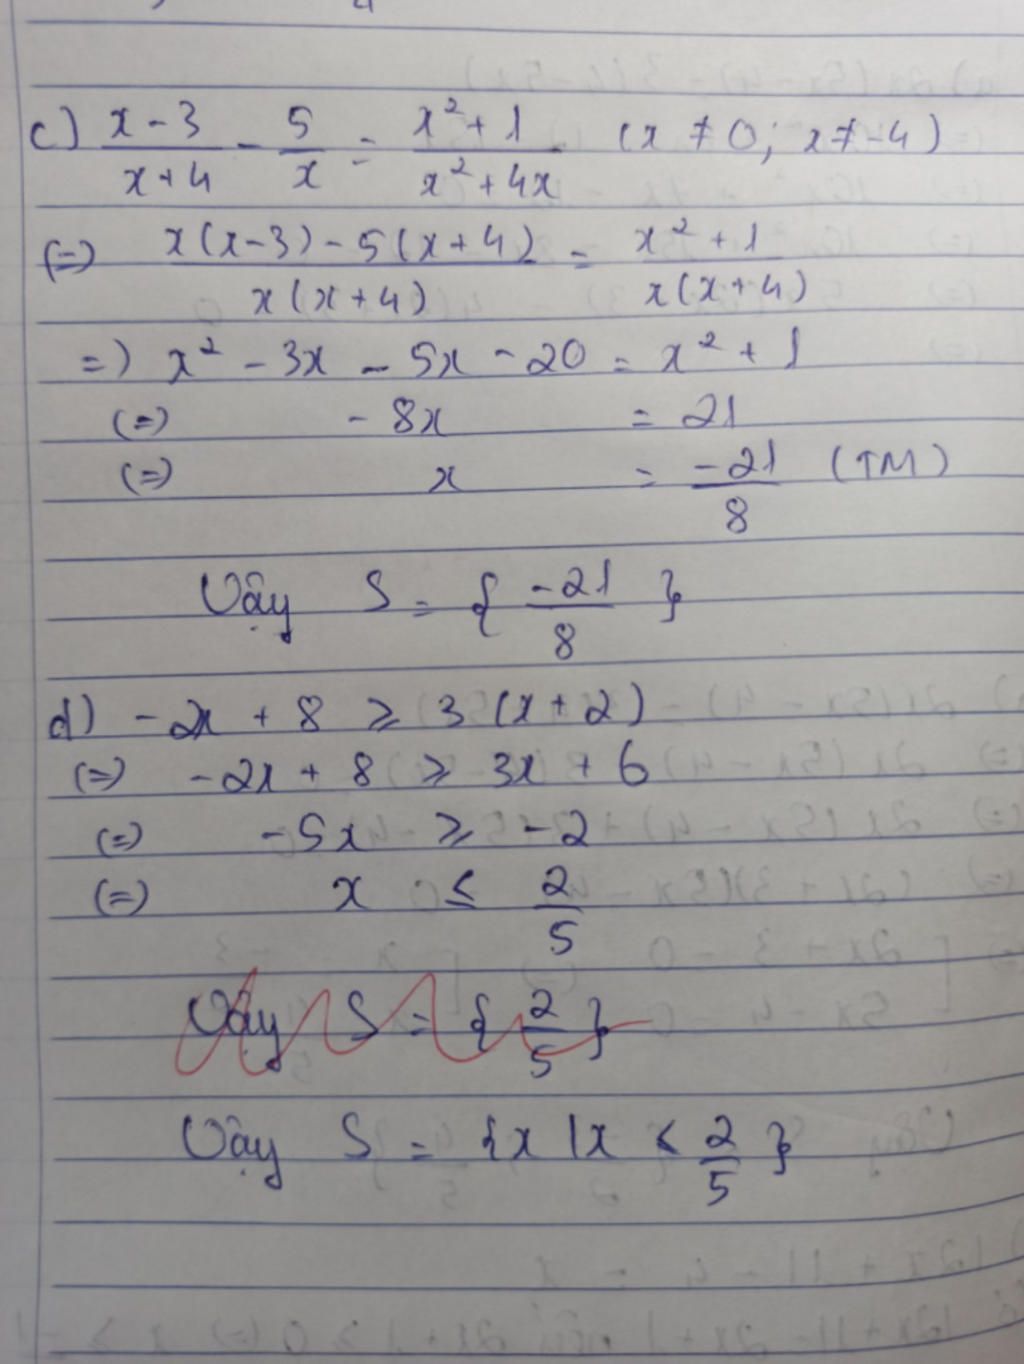 c) \frac{x-3}{x+4} - \frac{5}{x} = \frac{x^2+1}{x^2+4x} (x ≠ 0; x ≠ -4)
(=) \frac{x(x-3) - 5(x+4)}{x(x+4)} = \frac{x^2+1}{x(x+4)}
=) x^2 - 3x - 5x - 20 = x^2 + 1
(=) - 8x = 21
(=) x = \frac{-21}{8} (TM)
Vậy S = { \frac{-21}{8} }
d) -2x + 8 ≥ 3(x+2)
(=) -2x + 8 ≥ 3x + 6
(=) -5x ≥ -2
(=) x ≤ \frac{2}{5}
Vậy S = { \frac{2}{5} }
Vậy S = {x | x < \frac{2}{5} }